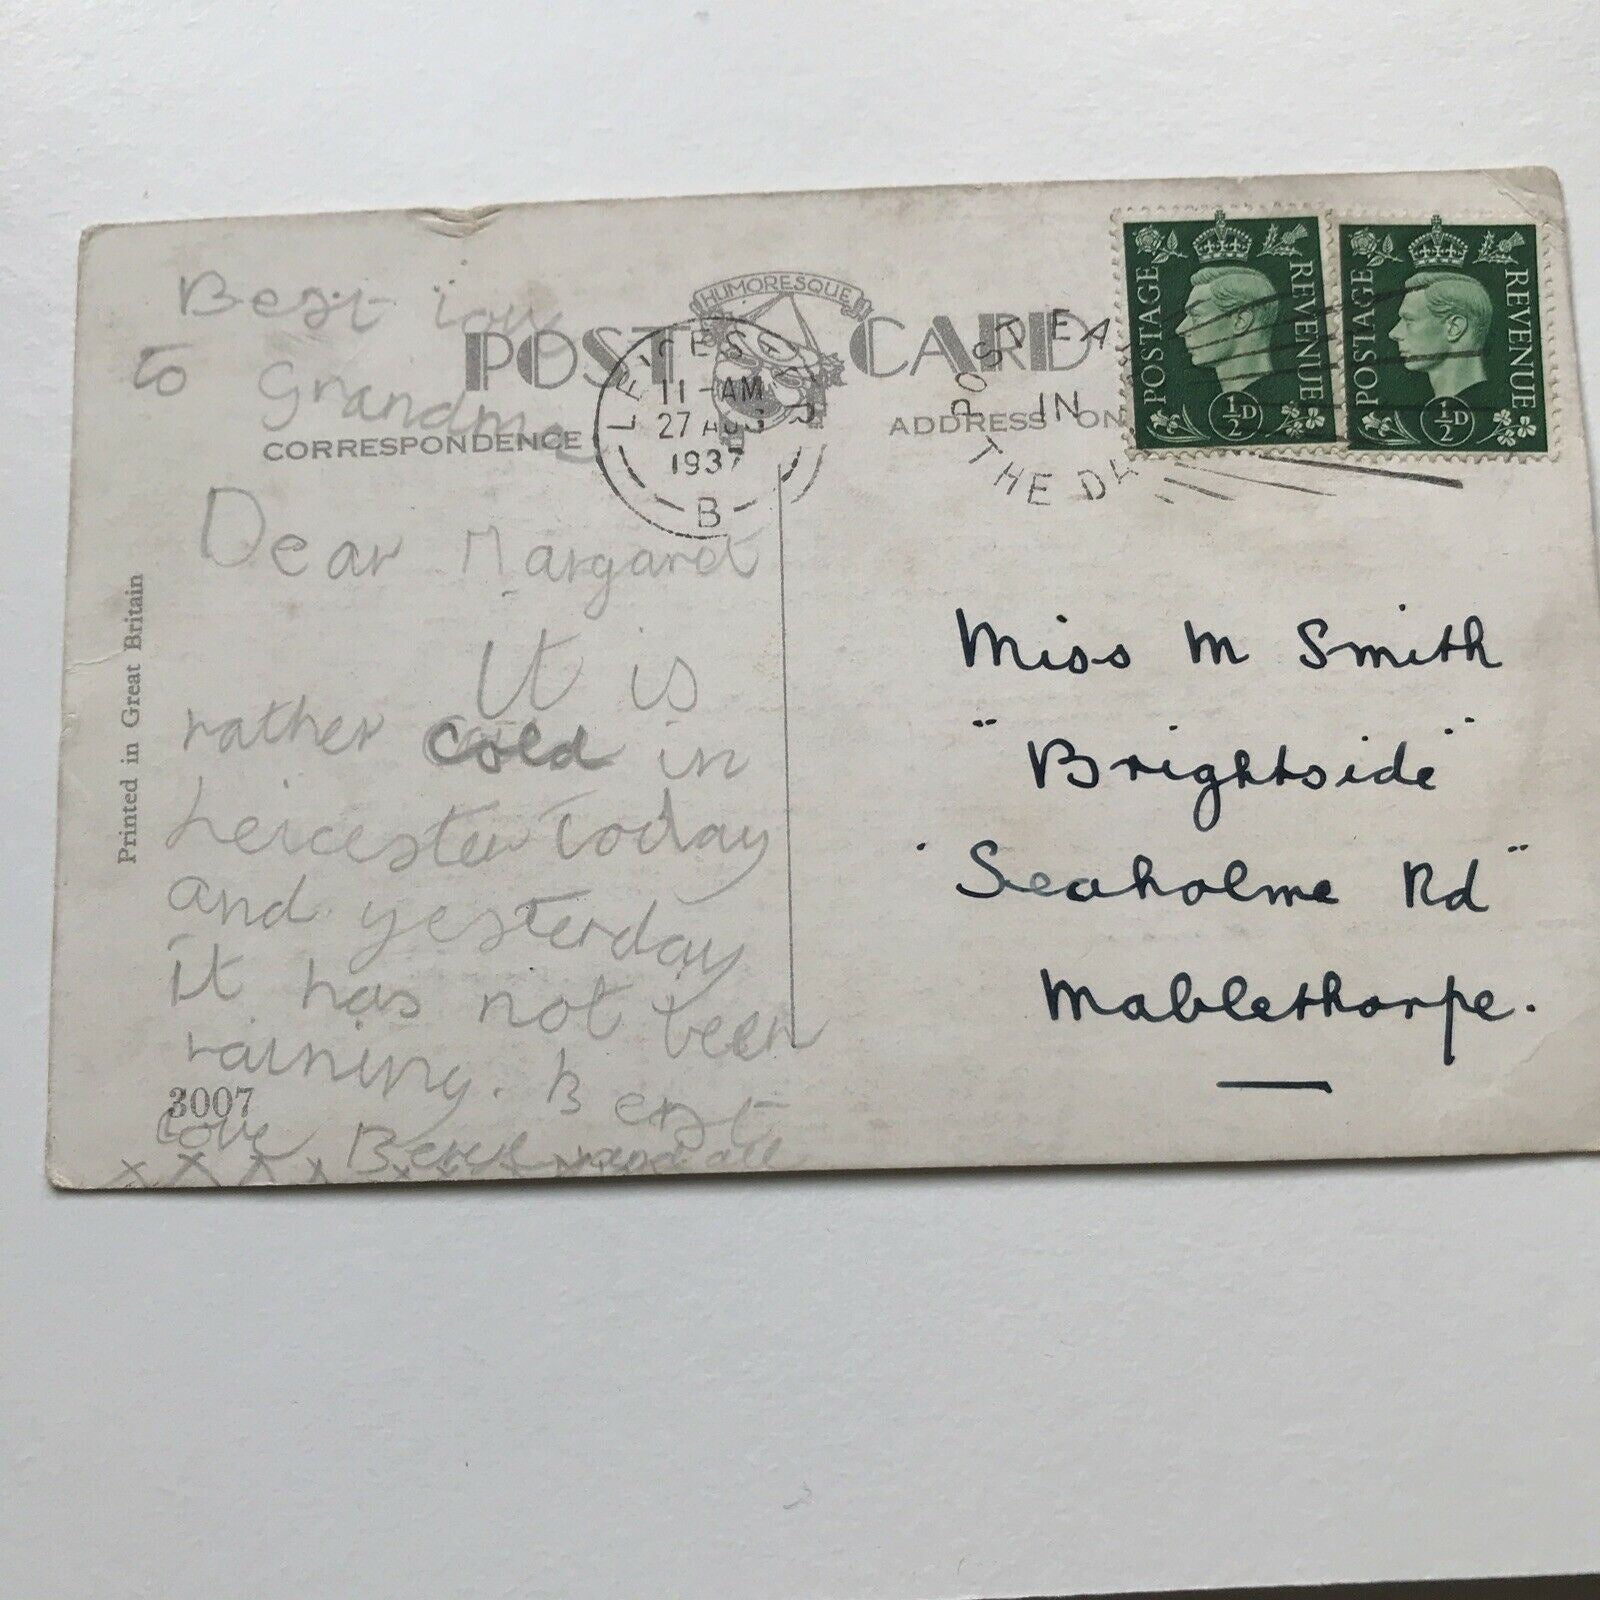 Best love
to Grandma
HUMORESQUE
POST CARD
CORRESPONDENCE
ADDRESS ON
LEICES
11-AM
27 AUG
1937
B
POST EA
IN
THE DA
POSTAGE REVENUE
½D
POSTAGE REVENUE
½D
Dear Margaret
It is
rather cold in
Leicester today
and yesterday
it has not been
raining. Best
love
x x x x
3007
Printed in Great Britain
Miss M Smith
"Brightside"
"Seaholme Rd"
Mablethorpe.